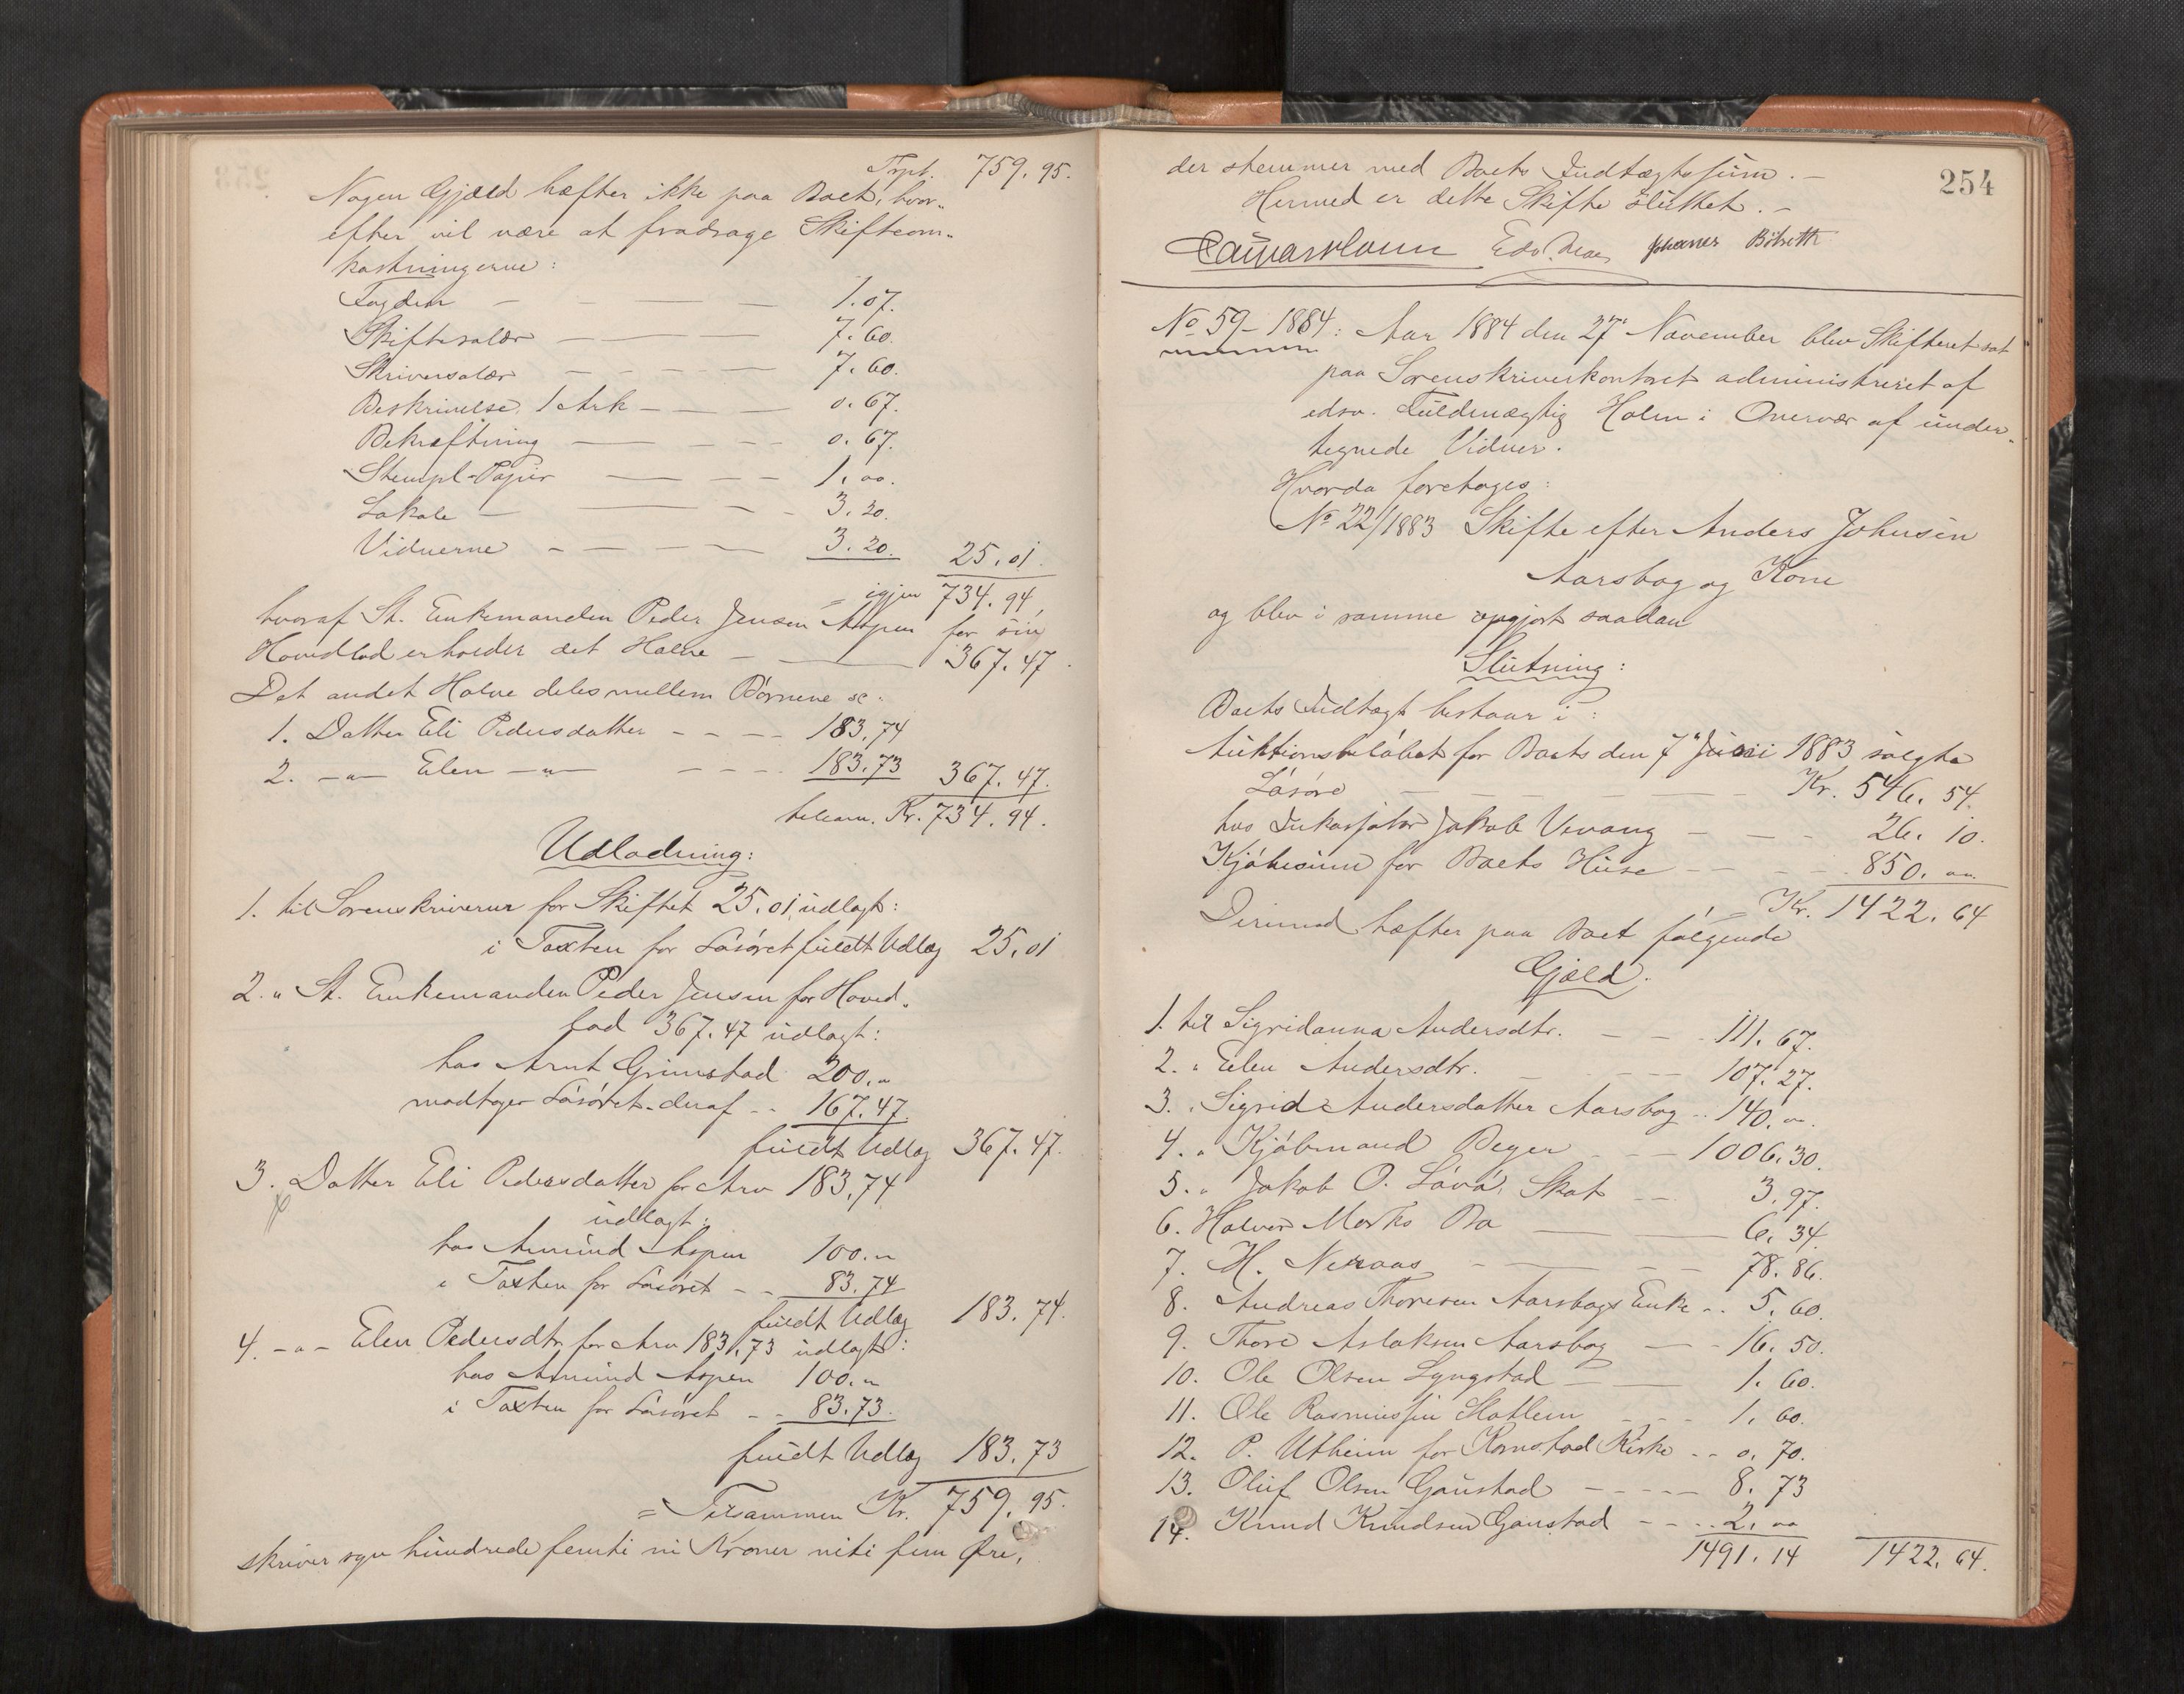 Trpt. 759.95.
Nogen Gjæld hæfter ikke paa Boet, hvor„
efter vil være at fradrage Skifteom„
kostningerne:
Fogden — 1.07.
Skiftesalær — 7.60.
Skriversalær — 7.60.
Beskrivelse 1 Ark — 0.67.
Bekræftning — 0.67.
Stempl.-Papir — 1.00.
Lokale — 3.20.
Vidnerne — 3.20. 25.01.
= igjen 734.94,
hvoraf St. Enkemanden Peder Jensen Aspen for sin
Hovedlod erholder det Halve — 367.47.
Det andet Halve deles mellem Børnene sc.
1. Datter Eli Pedersdatter — 183.74
2. –„– Elen –„– — 183.73 367.47.
tilsam. Kr. 734.94.
Udlodning:
1. til Sorenskriveren for Skiftet 25.01 udlagt:
i Taxten for Løsøret fuldt Udlæg 25.01
2. „ St. Enkemanden Peder Jensen for Hoved„
lod 367.47 udlagt:
hos Arnt Grimstad 200.„
modtager Løsøret deraf -- 167.47.
fuldt Udlæg 367.47.
3. Datter Eli Pedersdatter for Arv 183.74
udlagt:
hos Amund Aspen 100.„
i Taxten for Løsøret -- 83.74
fuldt Udlæg 183.74.
4. –„– Elen Pedersdtr for Arv 183.73 udlagt:
hos Amund Aspen 100.„
i Taxten for Løsøret -- 83.73.
fuldt Udlæg 183.73
= Tilsammen Kr. 759.95.
skriver syv hundrede femti ni Kroner niti fem Øre,
254
der stemmer med Boets Indtægtssum. –
Hermed er dette Skifte sluttet. –
Johannes
No 59 – 1884: Aar 1884 den 27' November blev Skifteret sat
paa Sorenskriverkontoret administreret af
edsv. Fuldmægtig Holm i Overvær af under„
tegnede Vidner.
Hvorda foretoges:
No 22/1883 Skifte efter Anders Johnsen
Aarsbog og Kone
og blev i samme opgjort saadan
Slutning:
Boets Indtægt bestaar i:
Auktionsbeløbet for Boets den 7' Juni 1883 solgte
Løsøre — Kr. 546.54.
hos Inkassator Jakob Vevang — 26.10.
Kjøbesum for Boets Huse — 850.00
Kr. 1422.64
Derimod hæfter paa Boet følgende
Gjæld.
1. til Sigridanna Andersdtr. — 111.67.
2. „ Elen Andersdtr. — 107.27.
3. „ Sigrid Andersdatter Aarsbog -- 140.„
4. „ Kjøbmand Beyer — 1006.30.
5. „ Jakob O. Løvø, Skat — 3.97.
6. Halvor Morks Bo — 6.34.
7. H. Neraas — 78.86.
8. Andreas Thoresen Aarsbogs Enke -- 5.60.
9. Thore Aslaksen Aarsbog — 16.50.
10. Ole Olsen Lyngstad — 1.60.
11. Ole Rasmussen Hatlem — 1.60.
12. P. Utheim for Kornstad Kirke -- 0.70.
13. Oluf Olsen Gaustad — 8.73
14. Knud Knudsen Gaustad — 2.00
1491.14 1422.64.